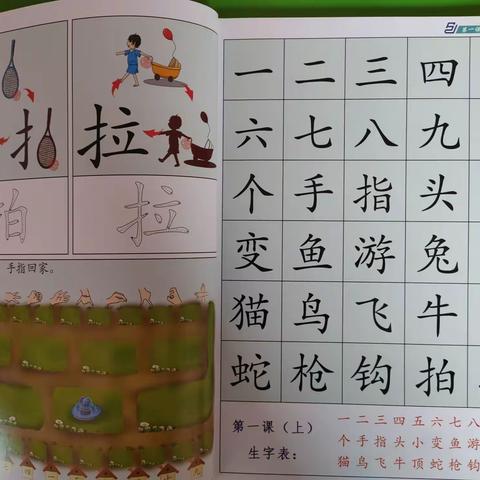 拍 拉
拍 拉
手指回家。
第一课
一 二 三 四
六 七 八 九
个 手 指 头
变 鱼 游 兔
猫 鸟 飞 牛
蛇 枪 钩 拍
第一课（上）
生字表：
一 二 三 四 五 六 七 八
个 手 指 头 小 变 鱼 游
猫 鸟 飞 牛 顶 蛇 枪 钩